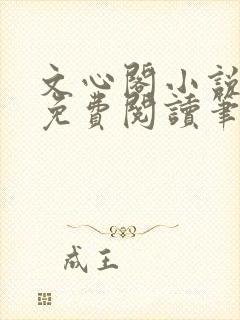 文心閣小說
免費閱讀筆
成王